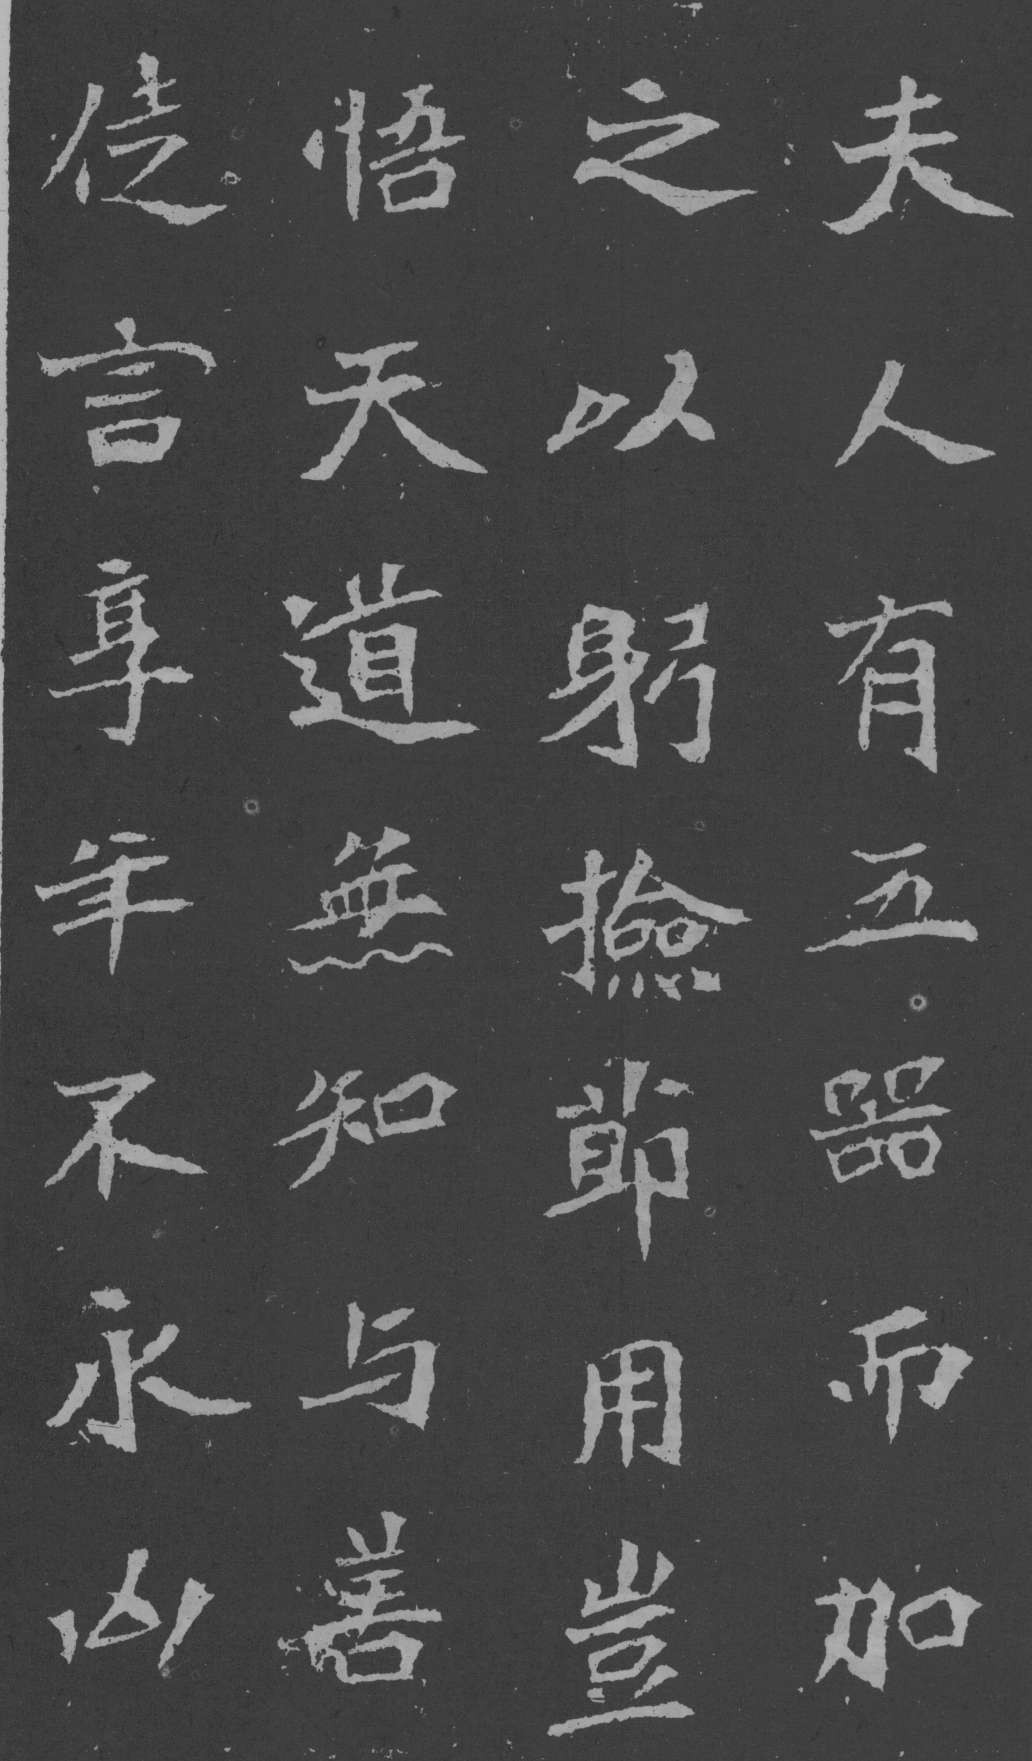 夫人有五器而加
之以躬撿節用豈
悟天道無知与善
徒言享年不永